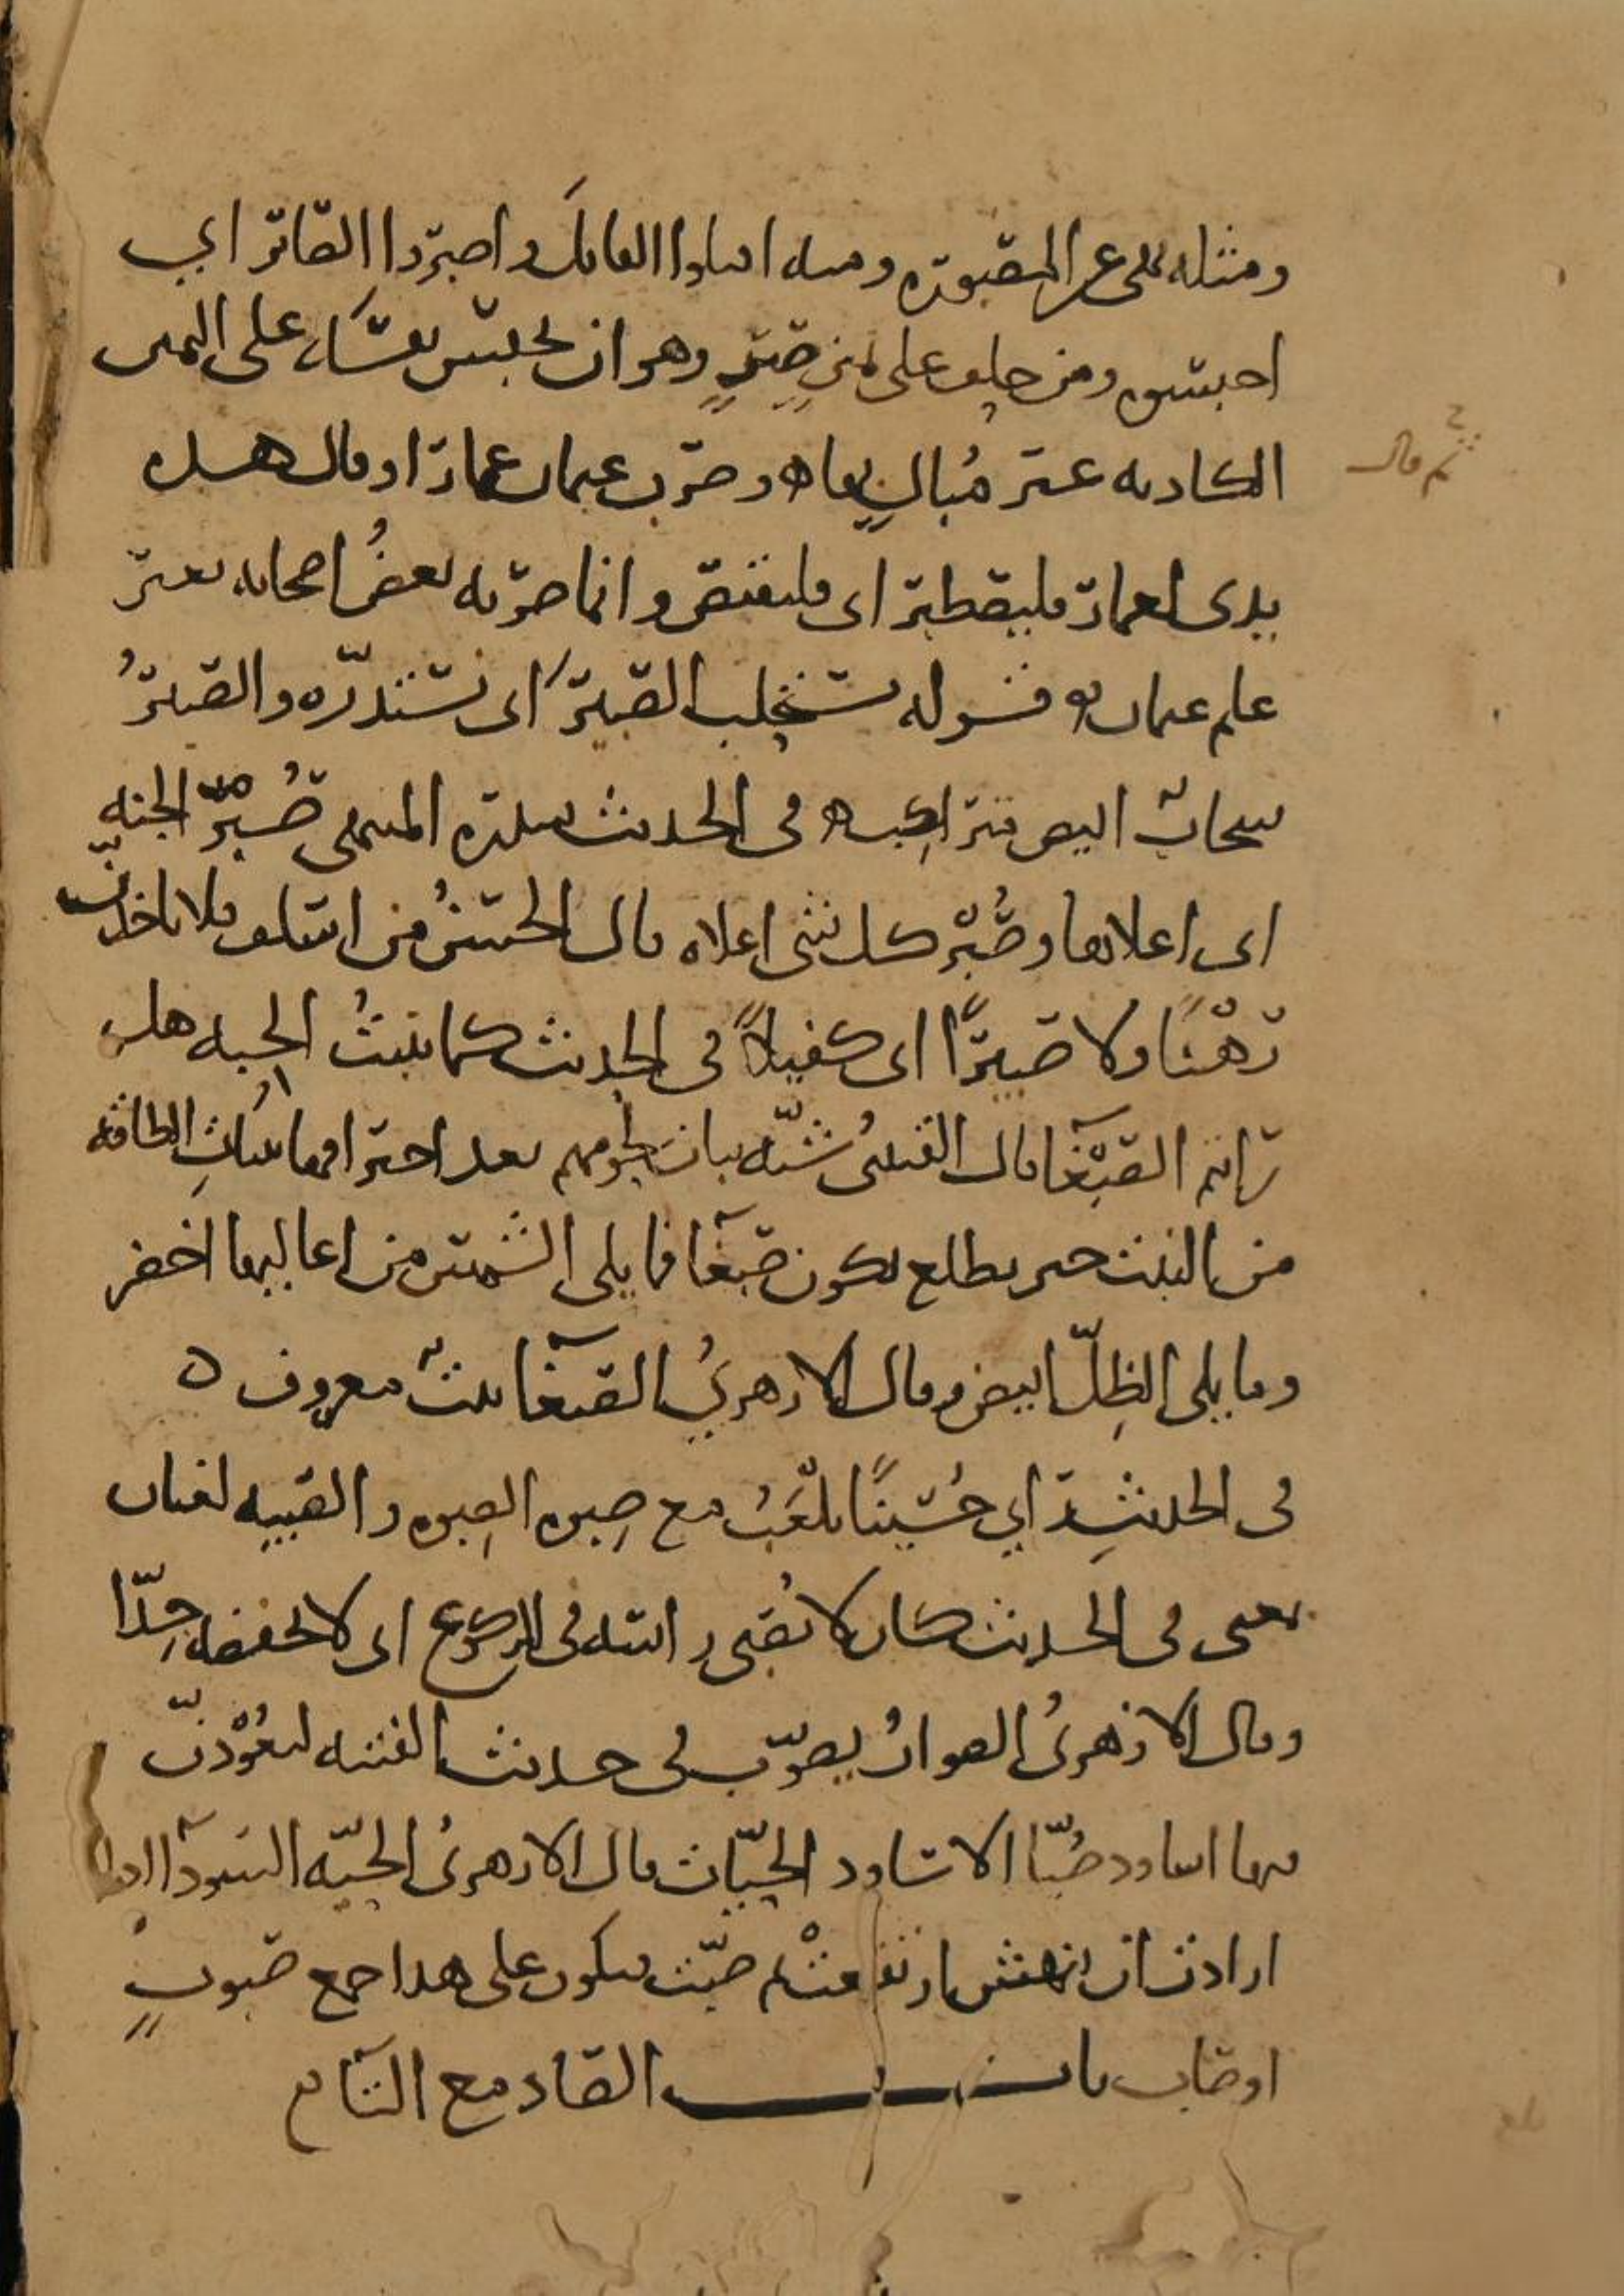 ومثله نهى عن المصبورة ومنه اقتلوا القاتل واصبروا الصابر اي
احبسوه ومن حلف على يمين صبر وهو ان يحبس نفسه على اليمين
الكاذبة غير مبال بها وضرب عثمان عمارا وقال هذه
ثم قال
يدى لعمار فليصطبر اى فليقتص وانما ضربه بعض اصحابه بغير
علم عثمان قوله نستحلب الصبير اى نستدره والصبير
سحاب ابيض متراكب فى الحديث سدرة المنتهى صبر الجنة
اى اعلاها وصبر كل شى اعلاه قال الحسن من اسلف فلا ياخذن
رهنا ولا صبيرا اى كفيلا فى الحديث كما تنبت الحبة هل
رايتم الصبغا قال القتيبى شبه نبات لحومهم بعد احتراقها بنبات الطاقة
من النبت حين يطلع تكون صبغا فما يلى الشمس من اعاليها اخضر
وما يلى الظل ابيض وقال الازهري الصبغا نبت معروف ه
فى الحديث راي حسينا يلعب مع صبوة الصبوة والصبية لغتان
فى الحديث كان لا يصبى راسه فى الركوع اى لا يخفضه جدا
وقال الازهرى الصواب يصوب فى حديث الفتنة لتعودن
فيها اساود صبا الاساود الحيات قال الازهرى الحية السودا اذا
ارادت ان تنهش ارتفعت ثم صبت فيكون على هذا جمع صبوب
او صاب باب الصاد مع التا